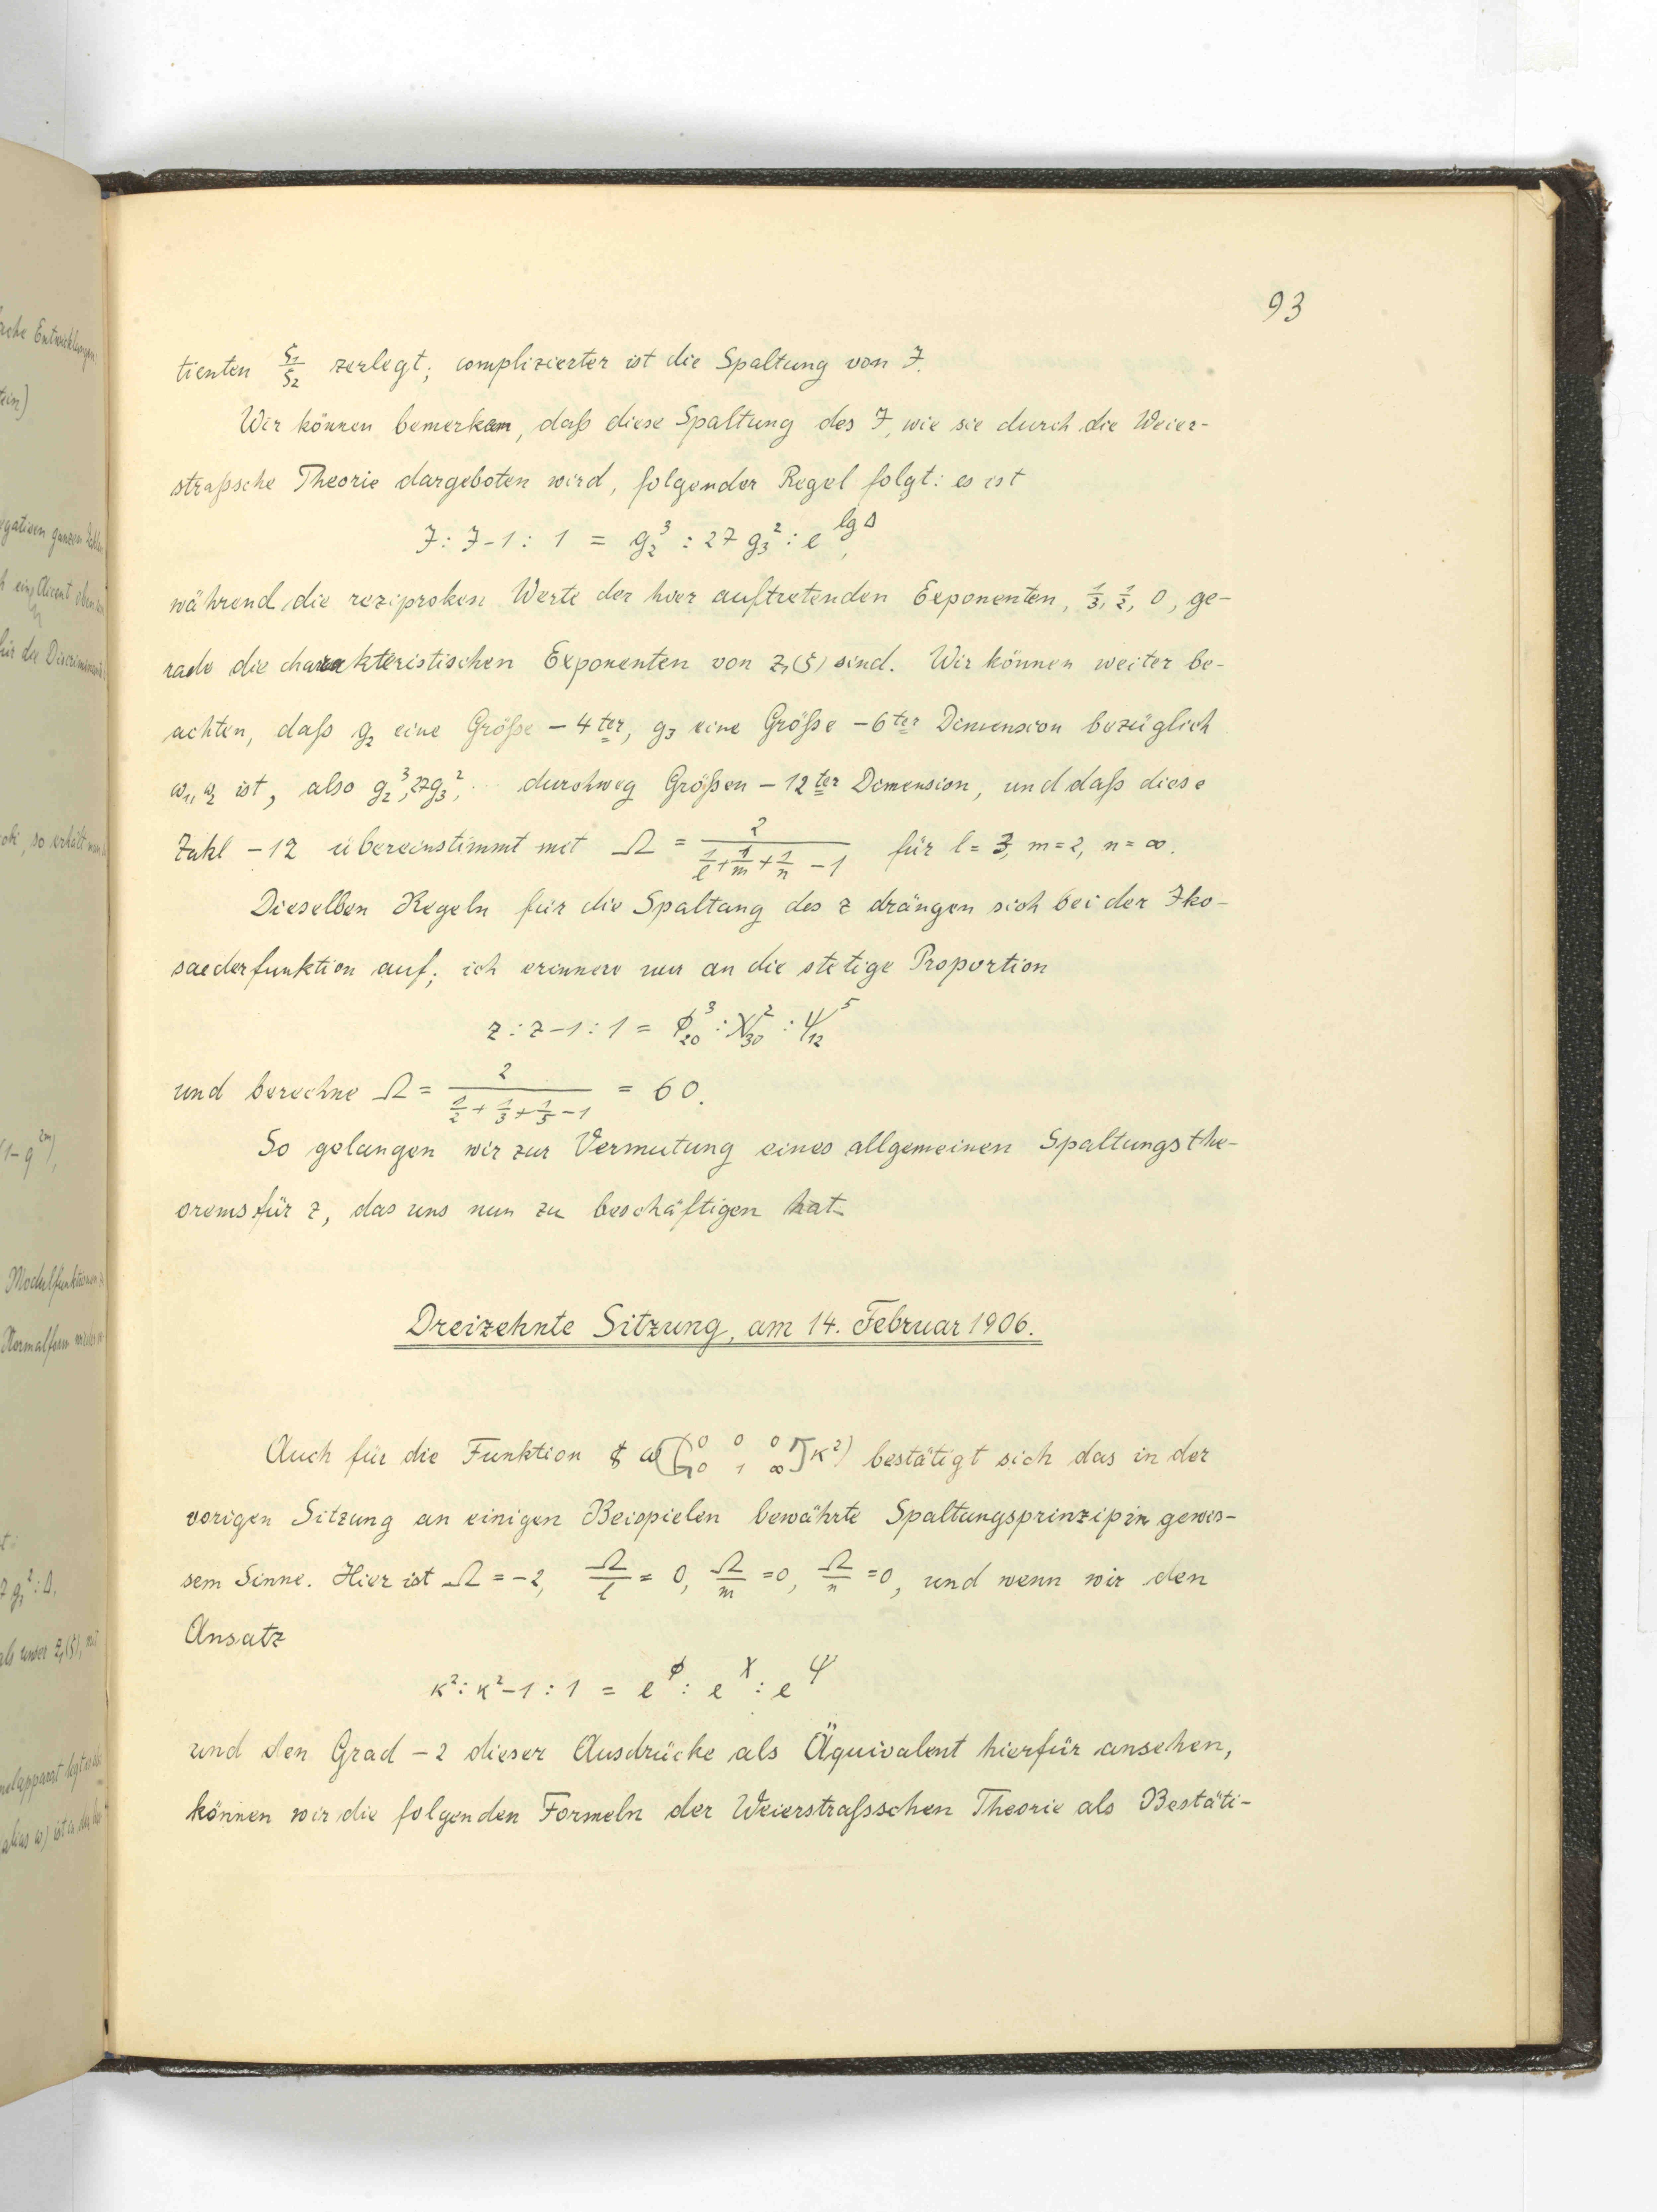 93
tienten ζ₁/ζ₂ zerlegt; complizierter ist die Spaltung von J.
Wir können bemerken, daß diese Spaltung des J, wie sie durch die Weier-
straßsche Theorie dargeboten wird, folgender Regel folgt: es ist
J : J-1 : 1 = g₂³ : 27 g₃² : e^{lg Δ},
während die reziproken Werte der hier auftretenden Exponenten, 1/3, 1/2, 0, ge-
rade die charakteristischen Exponenten von z₁(ζ) sind. Wir können weiter be-
achten, daß g₂ eine Größe -4ter, g₃ eine Größe -6ter Dimension bezüglich
ω₁, ω₂ ist, also g₂³, 27g₃², .. durchweg Größen -12ter Dimension, und daß diese
Zahl -12 übereinstimmt mit Ω = 2/(1/l + 1/m + 1/n - 1) für l = 3, m = 2, n = ∞.
Dieselben Regeln für die Spaltung des z drängen sich bei der Iko-
saederfunktion auf; ich erinnere nur an die stetige Proportion
z : z-1 : 1 = ϕ₂₀³ : χ₃₀² : ψ₁₂⁵
und berechne Ω = 2/(1/2 + 1/3 + 1/5 - 1) = 60.
So gelangen wir zur Vermutung eines allgemeinen Spaltungsthe-
orems für z, das uns nun zu beschäftigen hat.
Dreizehnte Sitzung, am 14. Februar 1906.
Auch für die Funktion ω([0 0 0 / 0 1 ∞] κ²) bestätigt sich das in der
vorigen Sitzung an einigen Beispielen bewährte Spaltungsprinzip in gewis-
sem Sinne. Hier ist Ω = -2, Ω/l = 0, Ω/m = 0, Ω/n = 0, und wenn wir den
Ansatz
κ² : κ²-1 : 1 = e^ϕ : e^χ : e^ψ
und den Grad -2 dieser Ausdrücke als Äquivalent hierfür ansehen,
können wir die folgenden Formeln der Weierstraßschen Theorie als Bestäti-